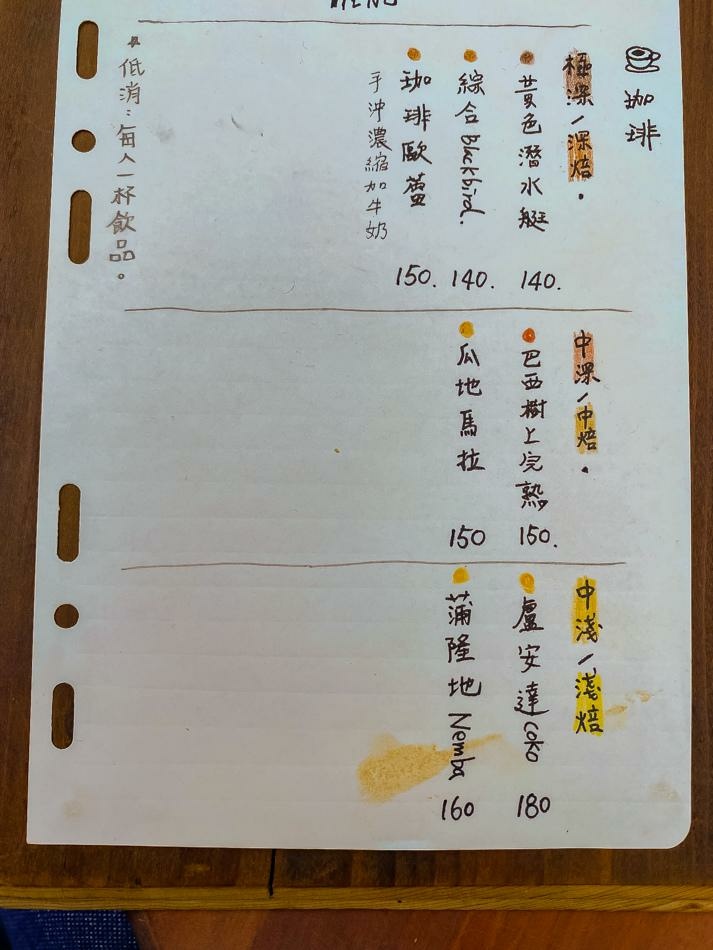 MENU
咖啡
極深/深焙.
黃色潛水艇 140.
綜合blackbird. 140.
咖啡歐蕾 150.
手沖濃縮加牛奶
中深/中焙.
巴西樹上完熟 150.
瓜地馬拉 150
中淺/淺焙
盧安達Coko 180
蒲隆地Nemba 160
*低消:每人一杯飲品。